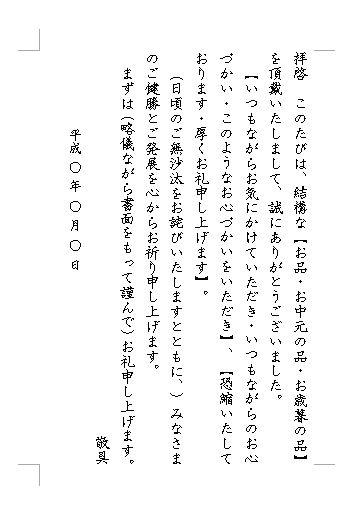 拝啓　このたびは、結構な【お品・お中元の品・お歳暮の品】
を頂戴いたしまして、誠にありがとうございました。
【いつもながらお気にかけていただき・いつもながらのお心
づかい・このようなお心づかいをいただき】、【恐縮いたして
おります・厚くお礼申し上げます】。
（日頃のご無沙汰をお詫びいたしますとともに、）みなさま
のご健勝とご発展を心からお祈り申し上げます。
まずは（略儀ながら書面をもって謹んで）お礼申し上げます。
敬具
平成〇年〇月〇日